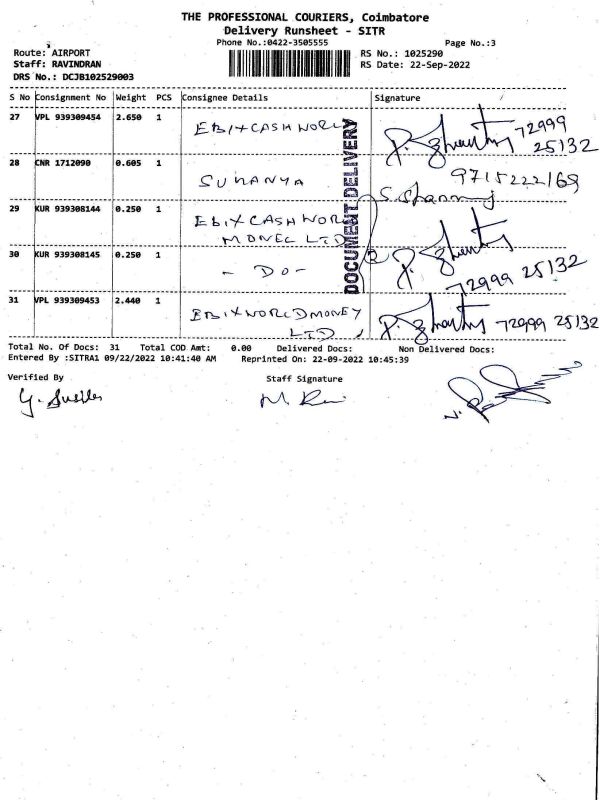 THE PROFESSIONAL COURIERS, Coimbatore
Delivery Runsheet - SITR
Phone No.:0422-3505555 Page No.:3
Route: AIRPORT RS No.: 1025290
Staff: RAVINDRAN RS Date: 22-Sep-2022
DRS No.: DCJB102529003
S No Consignment No Weight PCS Consignee Details Signature
27 VPL 939309454 2.650 1 EBIXCASH WORLD 72999
25132
28 CNR 1712090 0.605 1 SUKANYA 9715222169
29 KUR 939308144 0.250 1 EBIXCASH WORLD
MONEC LTD
30 KUR 939308145 0.250 1 - DO - 72999 25132
31 VPL 939309453 2.440 1 EBIX WORLD MONEY
LTD 72999 25132
DOCUMENT DELIVERY
Total No. Of Docs: 31 Total COD Amt: 0.00 Delivered Docs: Non Delivered Docs:
Entered By :SITRA1 09/22/2022 10:41:40 AM Reprinted On: 22-09-2022 10:45:39
Verified By Staff Signature